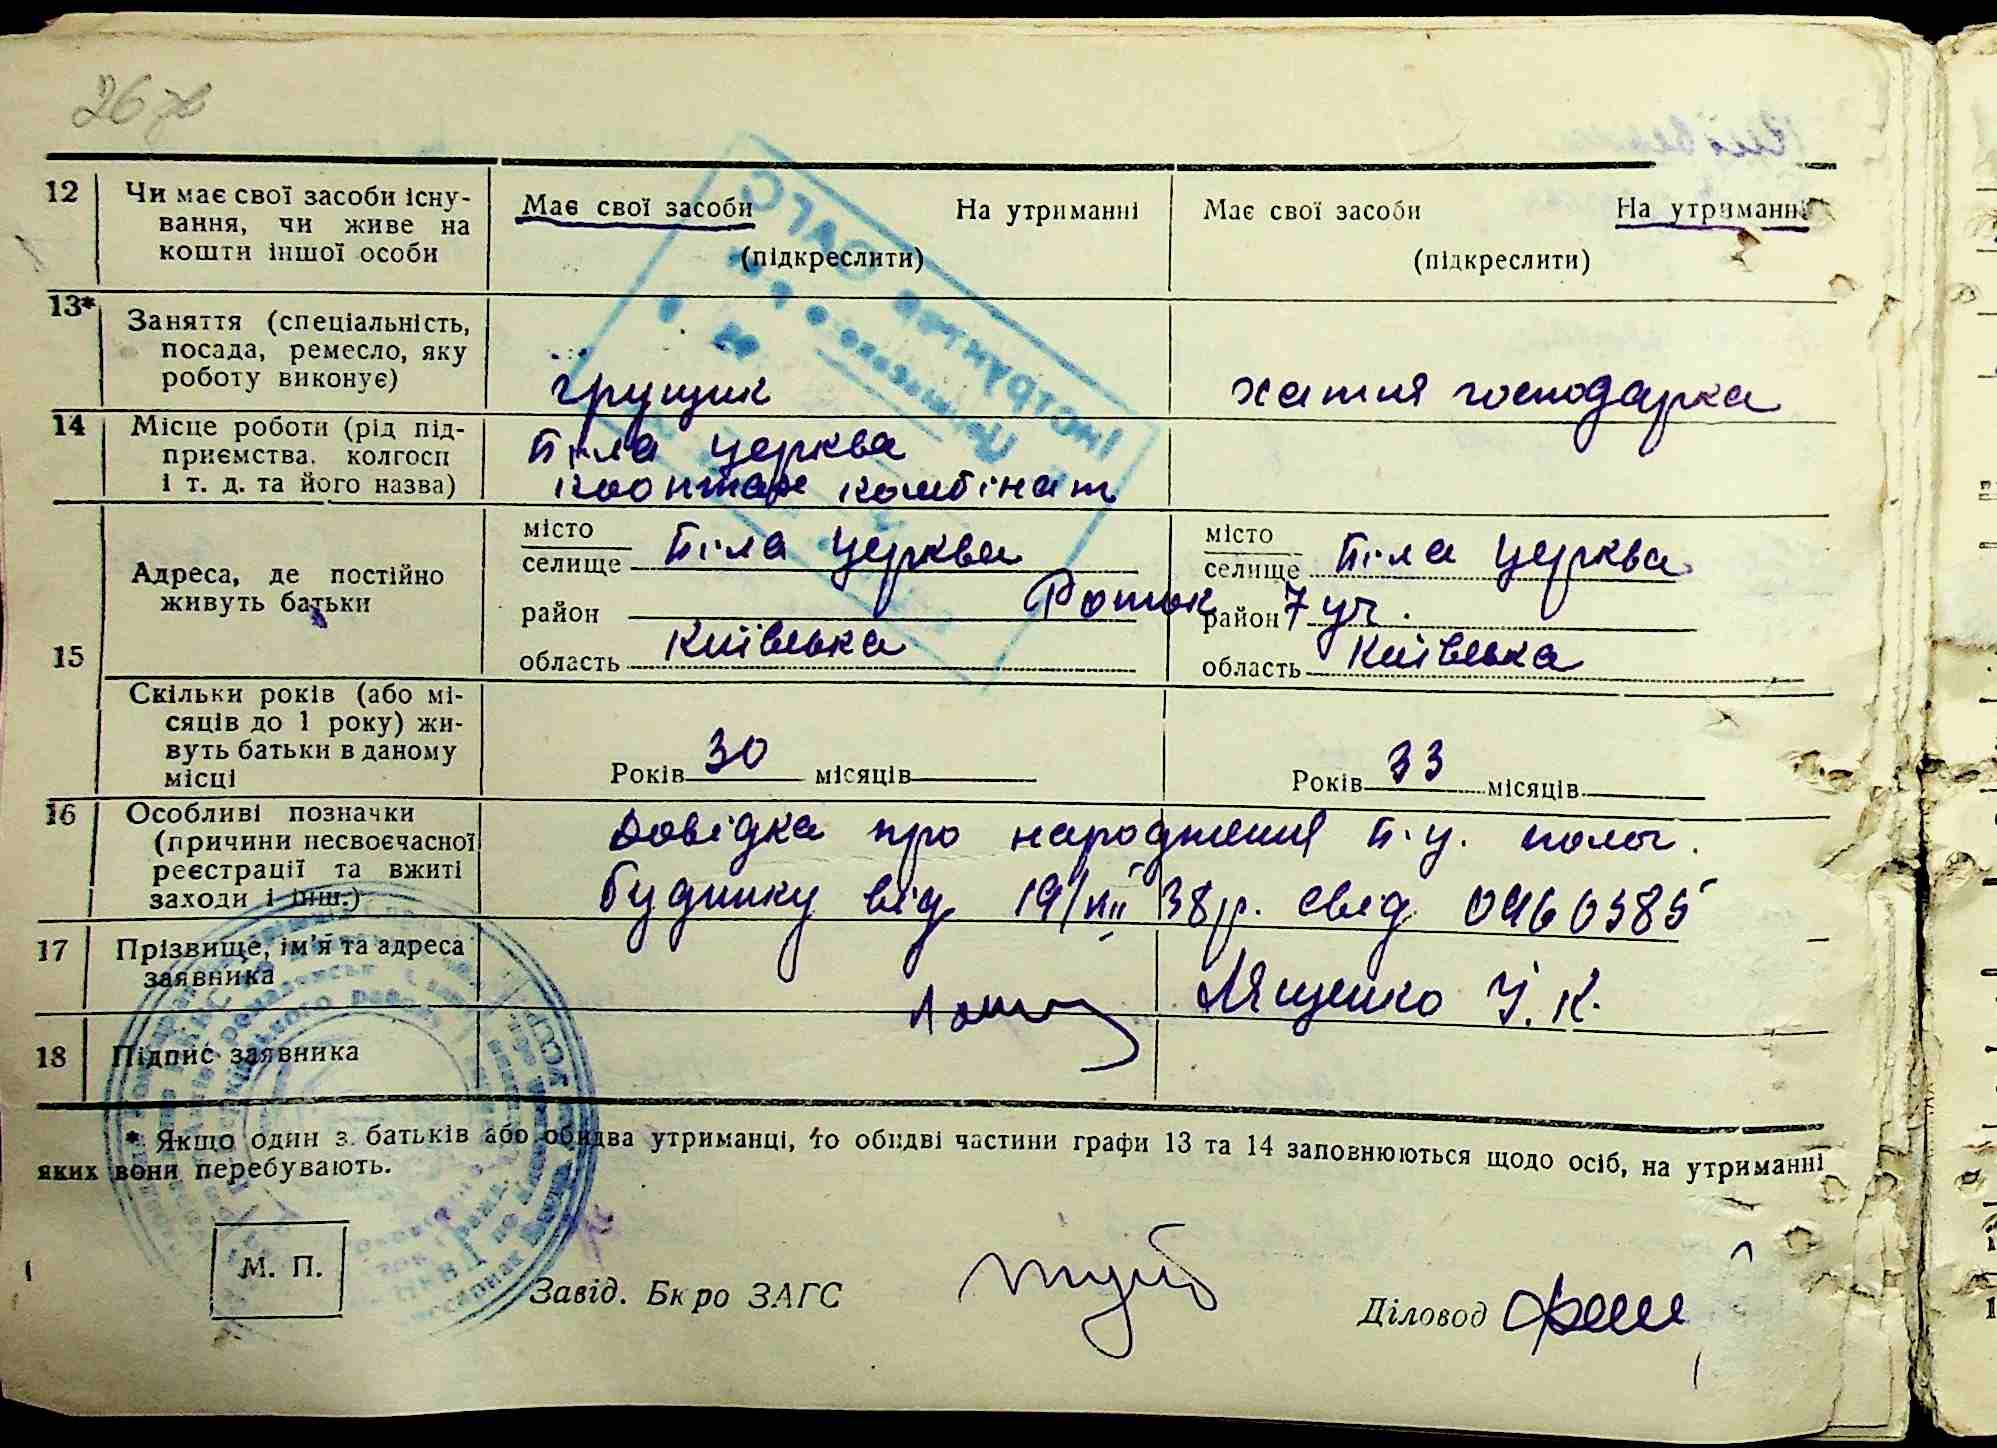 26 зв
12 Чи має свої засоби існу- Має свої засоби На утриманні Має свої засоби На утриманні
вання, чи живе на
кошти іншої особи (підкреслити) (підкреслити)
13* Заняття (спеціальність,
посада, ремесло, яку
роботу виконує) грущик хатня господарка
14 Місце роботи (рід під- Біла церква
приємства, колгосп
і т. д. та його назва) комбінат
15 Адреса, де постійно
живуть батьки
місто Біла Церква місто Біла Церква
селище селище
район Роток район 7 уч.
область Київська область Київська
Скільки років (або мі-
сяців до 1 року) жи-
вуть батьки в даному
місці Років 30 місяців Років 33 місяців
16 Особливі позначки Довідка про народження Б.Ц. полог.
(причини несвоєчасної
реєстрації та вжиті будинку від 19/XII 38 р. свід 0460585
заходи і інш.)
17 Прізвище, ім'я та адреса
заявника Лященко У. К.
18 Підпис заявника
* Якщо один з батьків або обидва утриманці, то обидві частини графи 13 та 14 заповнюються щодо осіб, на утриманні
яких вони перебувають.
М. П.
Завід. Бюро ЗАГС Діловод